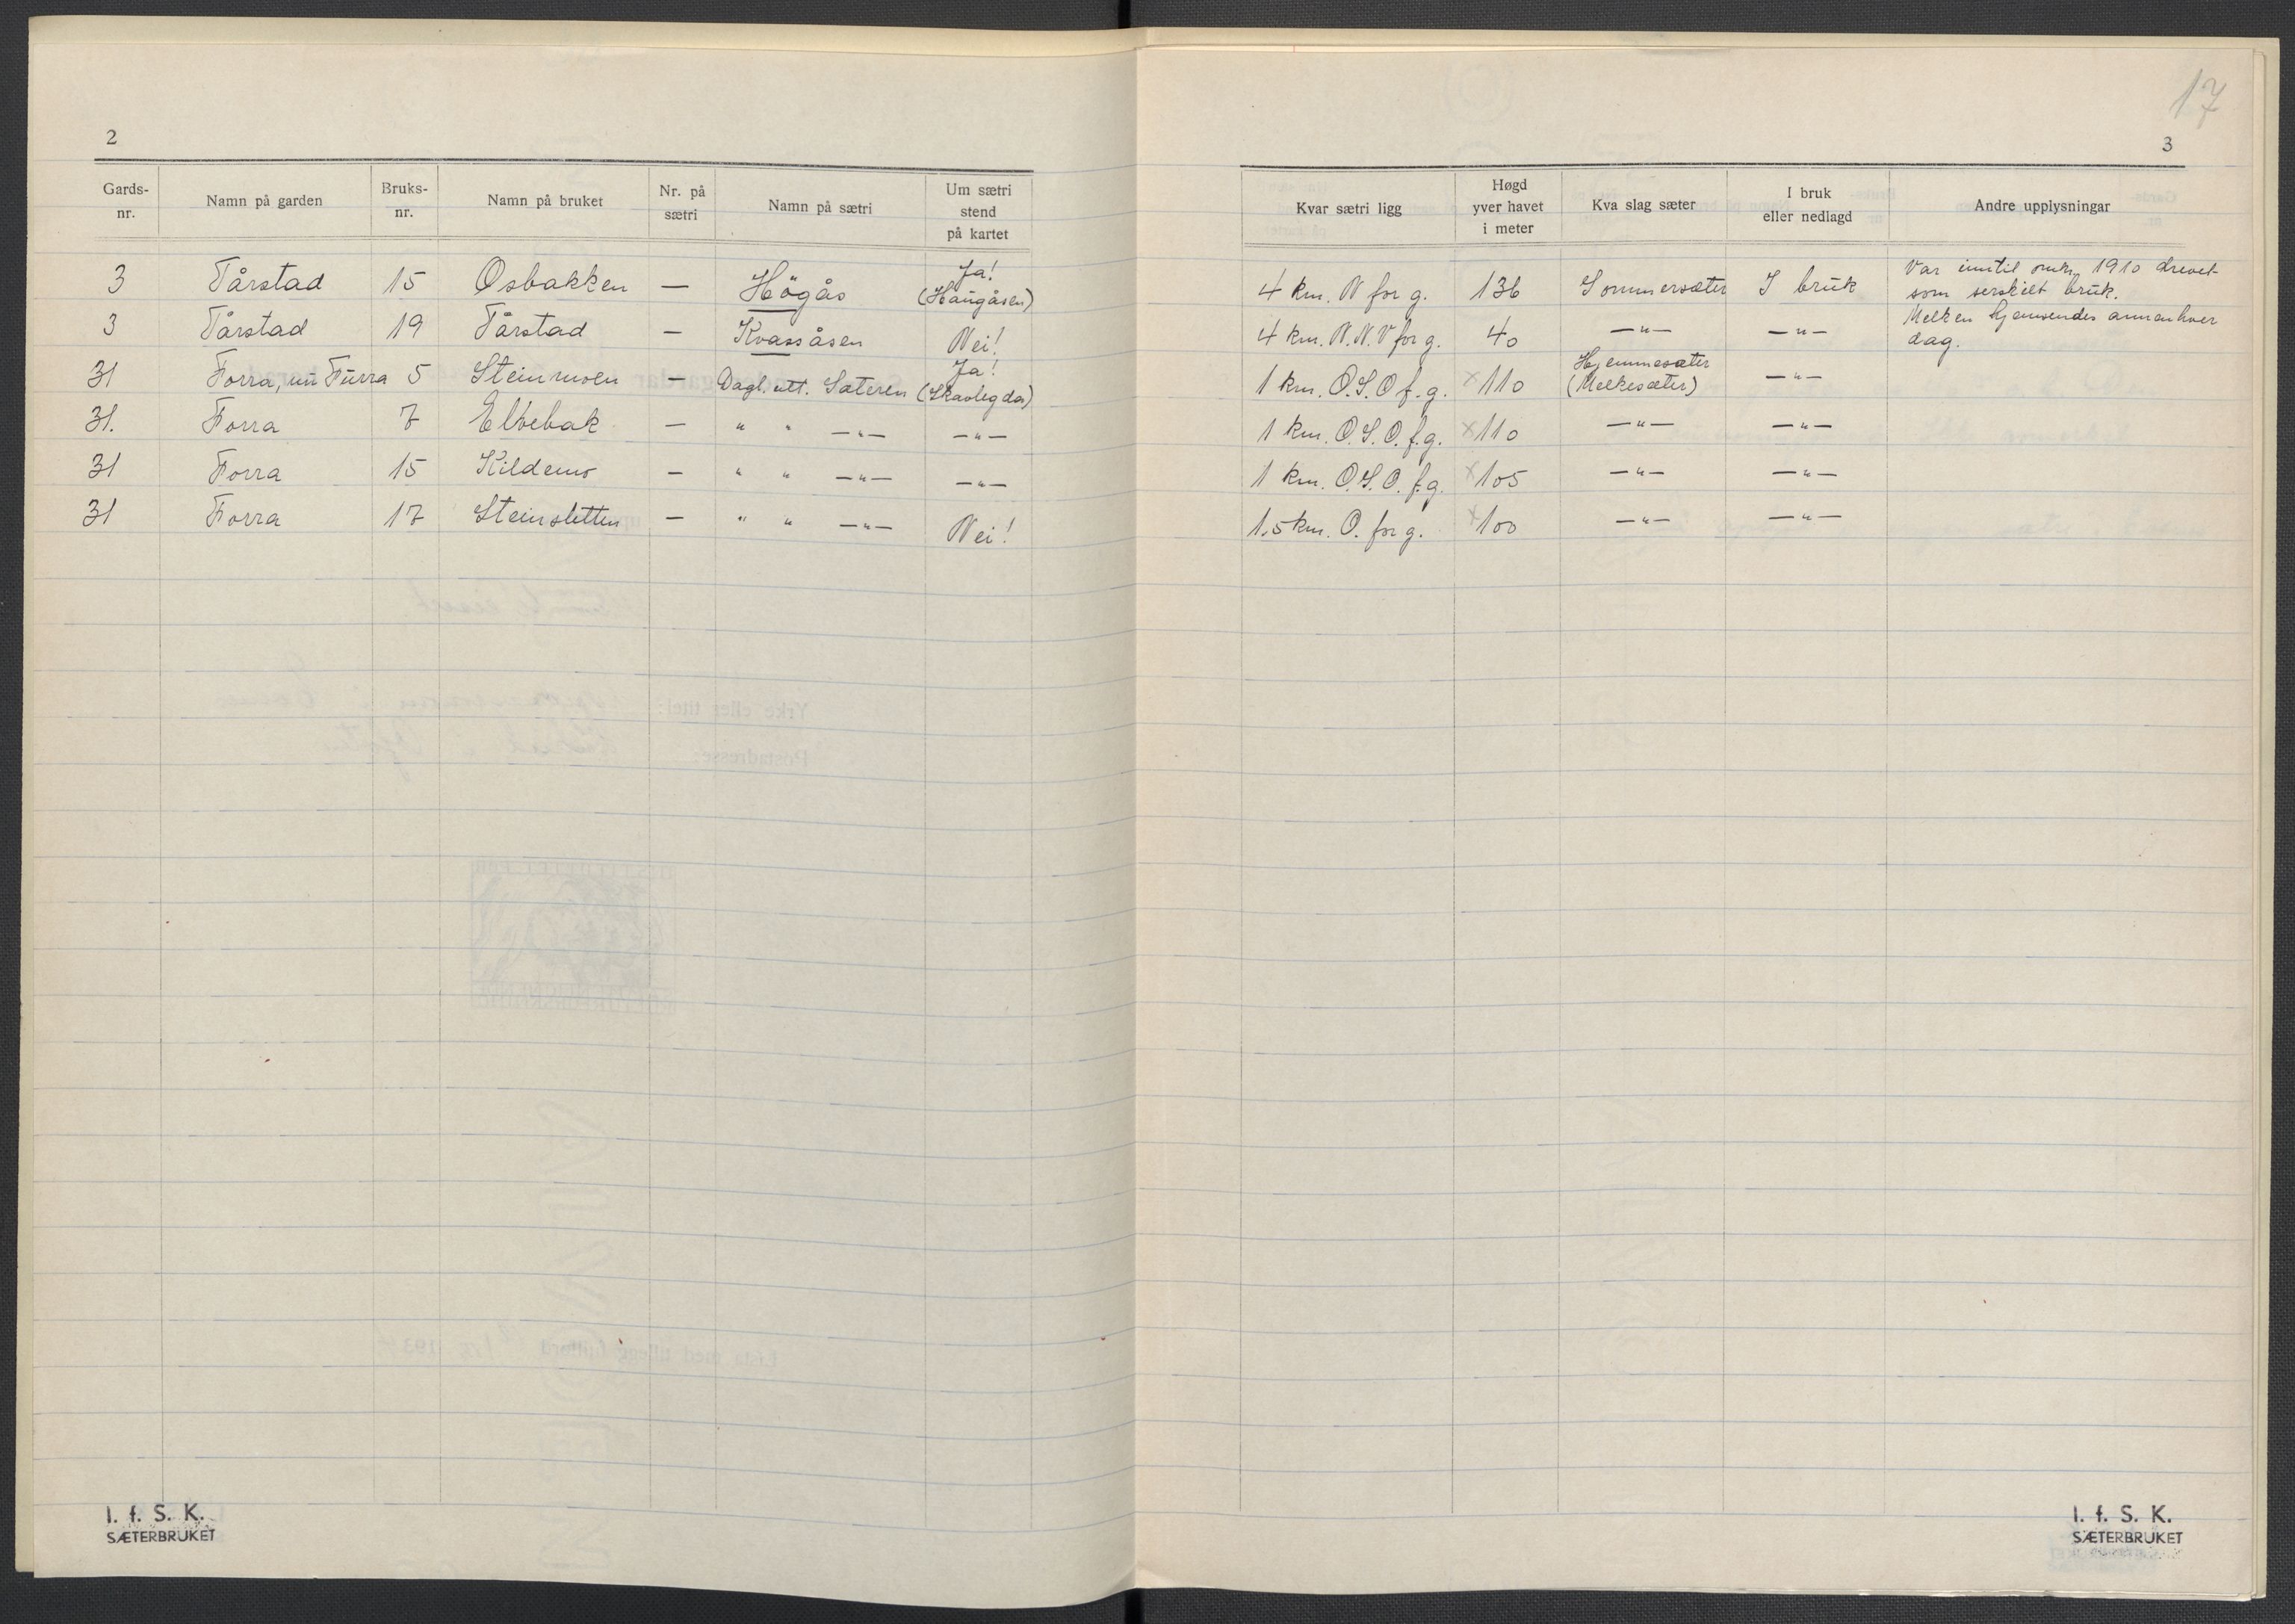 17
2
Gards-nr. Namn på garden Bruks-nr. Namn på bruket Nr. på sætri Namn på sætri Um sætri stend på kartet
3 Tårstad 15 Osbakken — Högås Ja! (Haugåsen)
3 Tårstad 19 Tårstad — Kvassåsen Nei!
31 Forra, uu Furra 5 Steinmoen — Dagl. utt. Sæteren Ja! (Skavlegda)
31. Forra 7 Elvebak — " " —"— —"—
31 Forra 15 Kildemo — " " —"— —"—
31 Forra 17 Steinsletten — " " —"— Nei!
I. f. S. K.
SÆTERBRUKET
3
Kvar sætri ligg Høgd yver havet i meter Kva slag sæter I bruk eller nedlagd Andre upplysningar
4 km. N for g. 136 Sommersæter I bruk Var inntil omkr. 1910 drevet som serskilt bruk.
4 km. N.N.V for g. 40 —"— —"— Melken hjemsendes annenhver dag.
1 km. O.S.O f. g. x110 Hjemmesæter (Melkesæter) —"—
1 km. O.S.O. f.g. x110 —"— —"—
1 km. O.S.O. f.g. x105 —"— —"—
1.5 km. O. for g. x100 —"— —"—
I. f. S. K.
SÆTERBRUKET